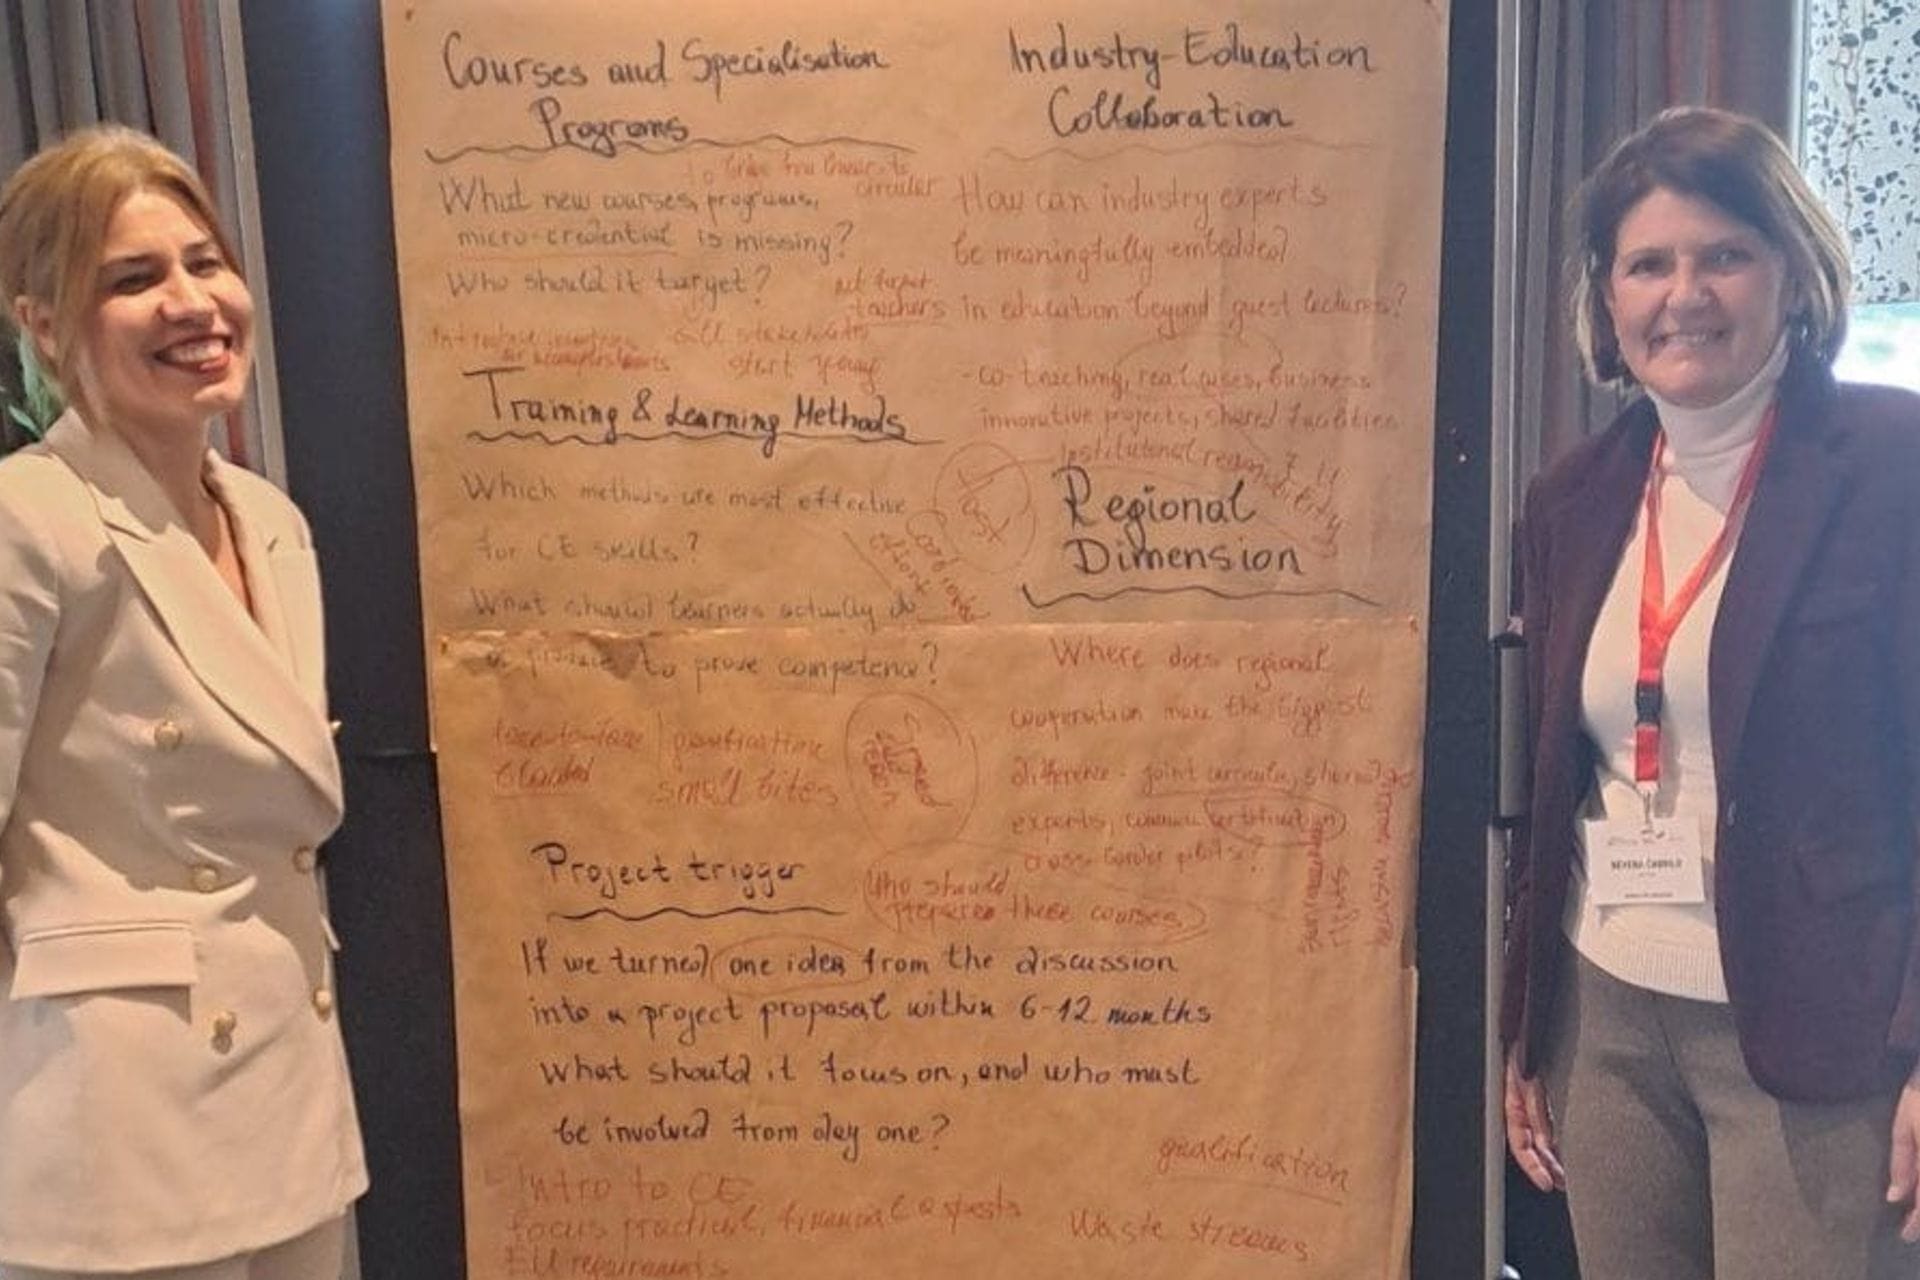 Courses and Specialisation
Programs
to
circular
What new courses, programs,
micro-credential is missing?
Who should it target?
teachers
all stakeholders
start young
Training & Learning Methods
Which methods are most effective
for CE skills?
What should learners actually do
to prove competence?
face-to-face
blended
small bites
Project trigger
If we turned one idea from the discussion
into a project proposal within 6-12 months
What should it focus on, and who must
be involved from day one?
Intro to CE
focus practical, financial aspects
EU requirements
Industry-Education
Collaboration
How can industry experts
be meaningfully embedded
in education beyond guest lectures?
- co-teaching, real cases, business
innovative projects, shared facilities
Institutional
Regional
Dimension
Where does regional
cooperation make the biggest
difference - joint curricula, shared
experts, common certification
cross-border pilots?
Who should
prepare these courses
qualification
Waste streams
NEVENA ČABRILO